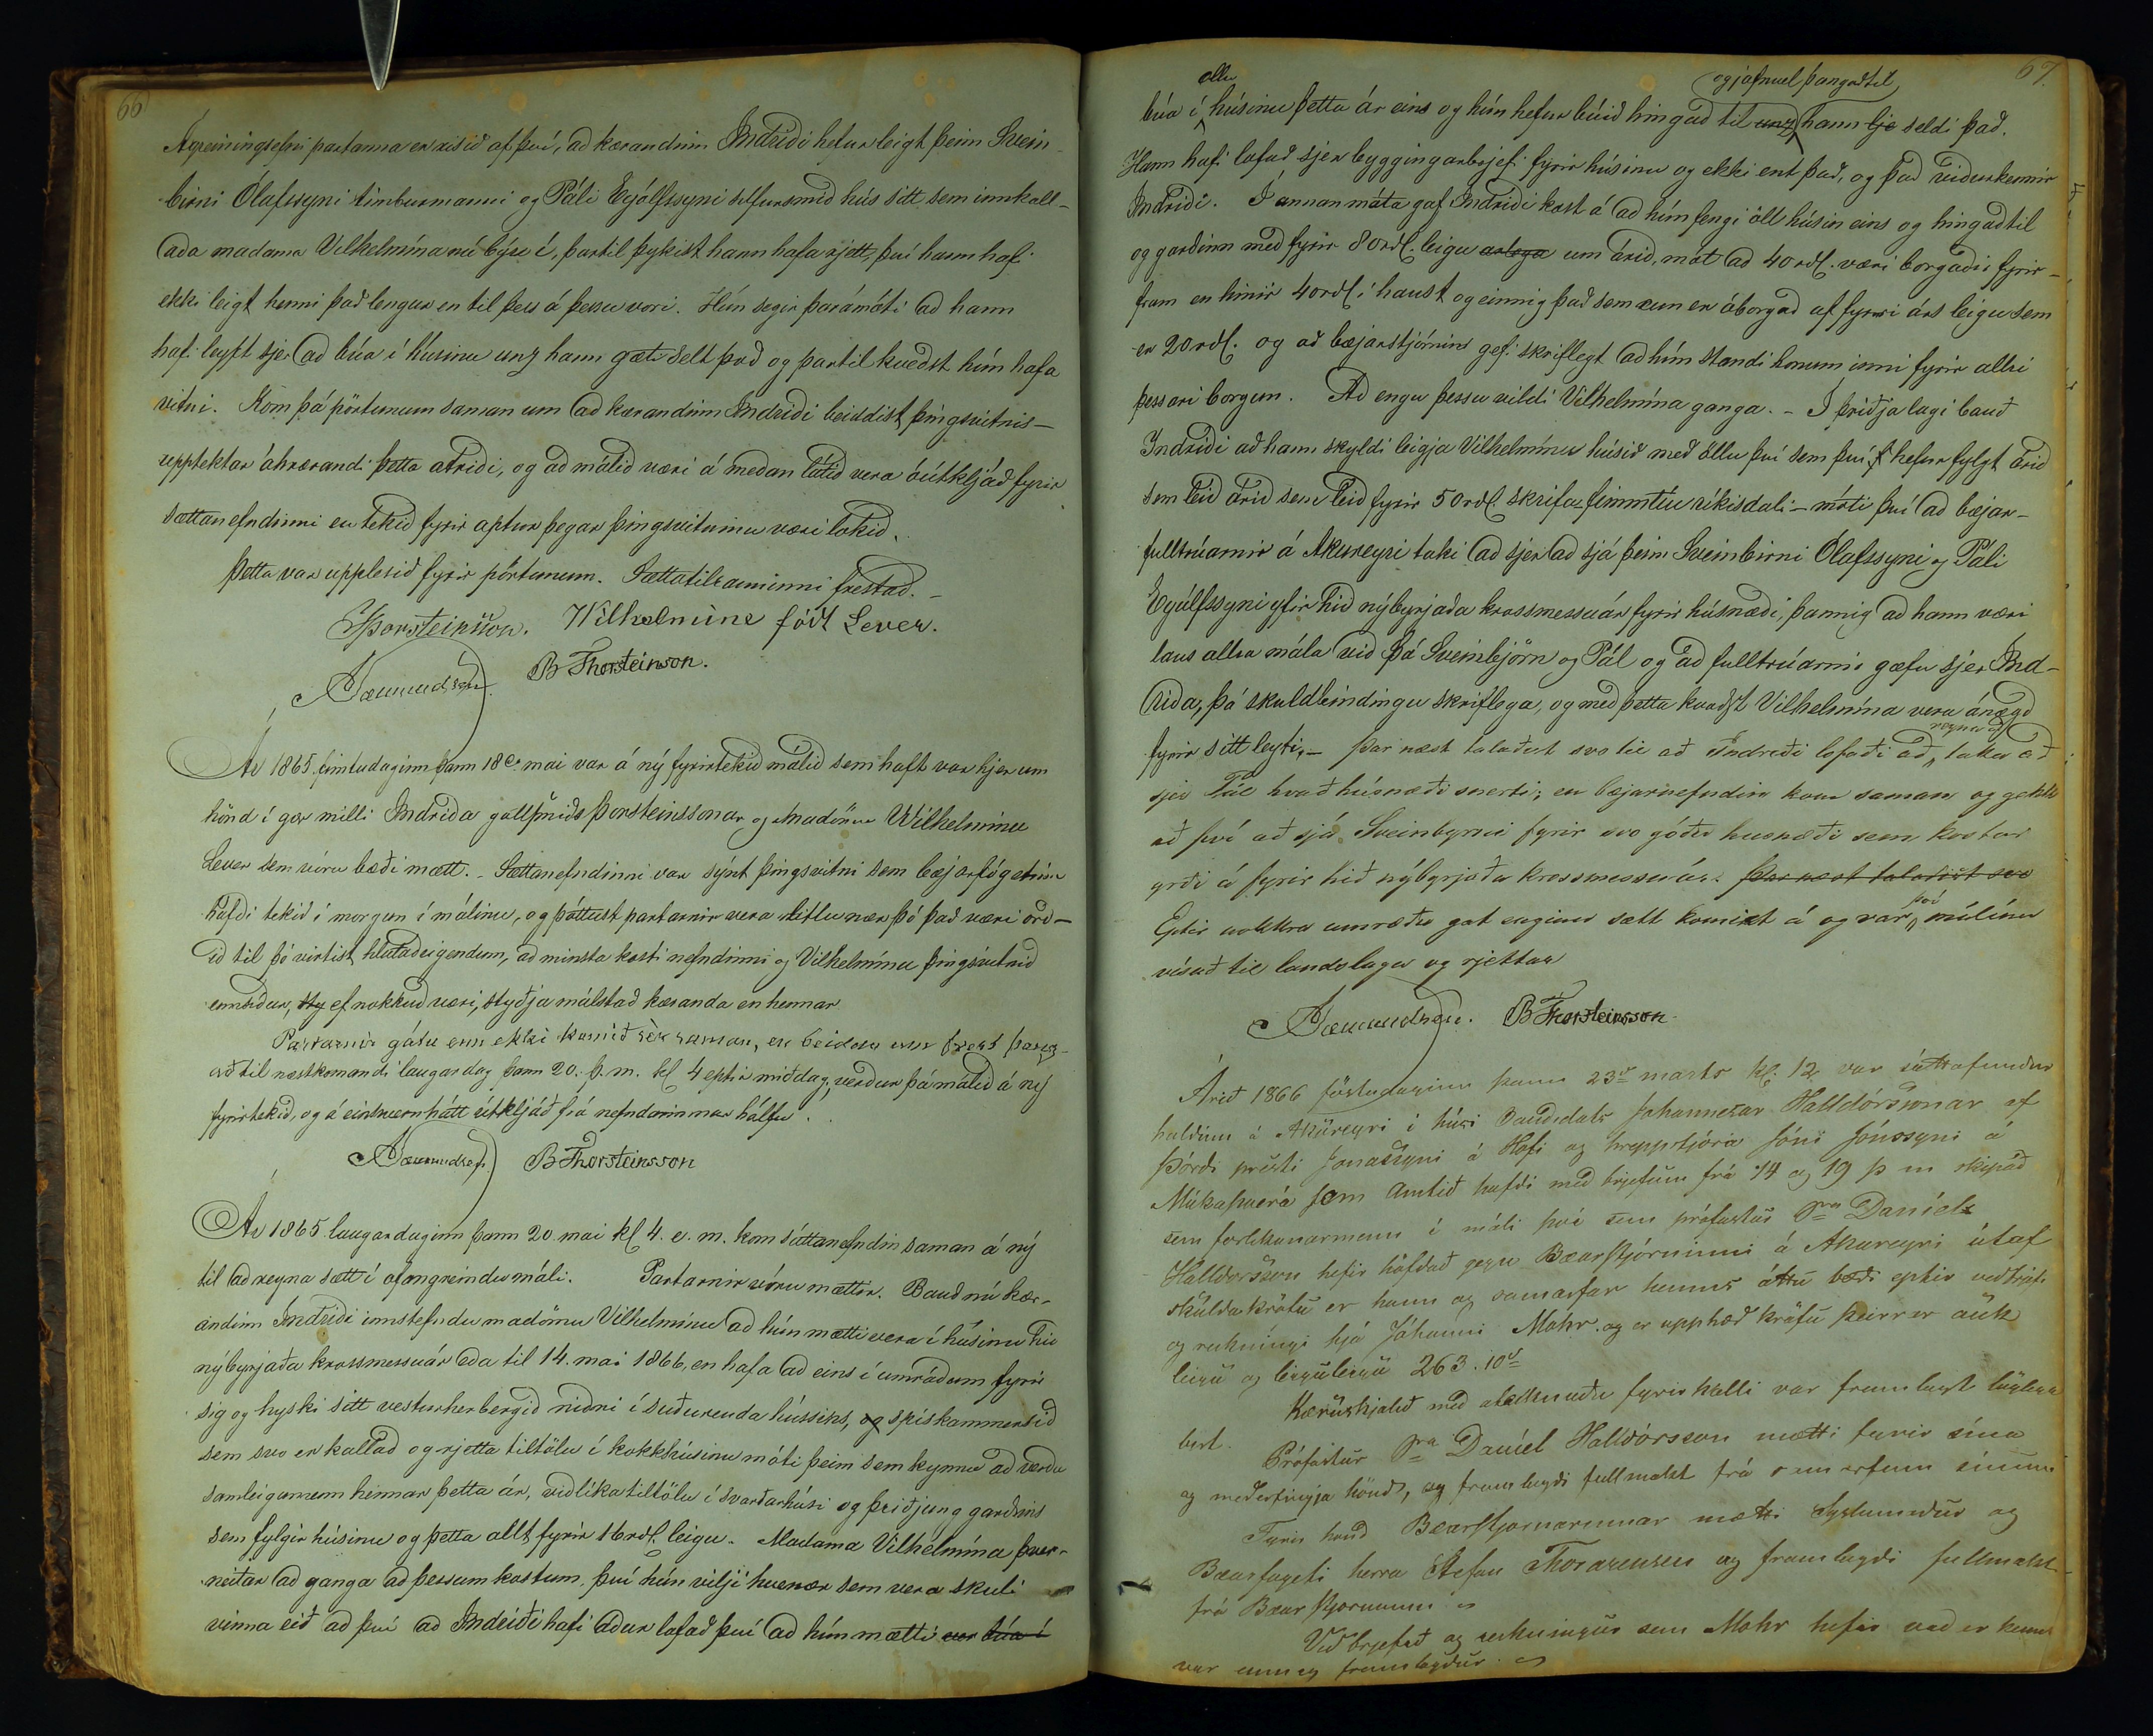 66
Ágreiningsefni partanna er risið af því, að kærandinn Indriði hefur leigt þeim Svein-
birni Ólafssyni timburmanni og Páli Eyólfssyni silfursmið hús sitt sem innkall-
aða madama Vilhelmína nú býr í, þartil þykist hann hafa rjett, því hann hafi
ekki leigt henni það lengur en til þess á þessu vori. Hún segir þarámóti að hann
hafi leyft sjer að búa í húsinu unz hann gæti selt það og þartil kveðst hún hafa
vitni. Kom þá pörtunum saman um að kærandinn Indriði beiddist þingsvitnis-
upptektar áhrærandi þetta atriði, og að málið væri á meðan látið vera óútkljáð fyrir
sættanefndinni en tekið fyrir aptur þegar þingsvitninu væri lokið.
Þetta var upplesið fyrir pörtunum. Sættatilrauninni frestað.
IÞorsteinsson. Wilhelmine födt Lever.
JSæmundsson. B Thorsteinson.
Ár 1865 fimtudaginn þann 18e mai var á ný fyrirtekið málið sem haft var hjer um
hönd í gær milli Indriða gullsmiðs Þorsteinssonar og Madömu Wilhelmínu
Lever sem vóru bæði mætt. Sættanefndinni var sýnt þingsvitni sem bæjarfógetinn
hafði tekið í morgun í málinu, og þóttust partarnir vera litlu nær þó það væri orð-
ið til þó virtist hlutaðeigendum, að minsta kosti nefndinni og Vilhelmínu þingsvitnið
ef nokkuð væri, styðja málstað kæranda en hennar
Partarnir gátu enn ekki komið sér saman, en beiddu um frest þang-
að til næstkomandi laugardag þann 20. þ.m. kl 4 eptir miðdag, verður þá málið á ný
fyrirtekið, og á einhvern hátt útkljáð frá nefndarinnar hálfu.
JSæmundsson B Thorsteinsson
Ár 1865 laugardaginn þann 20 mai kl 4. e. m. kom sáttanefndin saman á ný
til að reyna sætt í ofangreindu máli. Partarnir vóru mættir. Bauð nú kær-
andinn Indriði innstefndu madömu Vilhelmínu að hún mætti vera í húsinu hið
nýbyrjaða krossmessuár eða til 14. mai 1866, en hafa að eins í umráðum fyrir
sig og hyski sitt vesturherbergið niðri í suðurenda hússins, og spískammersið
sem svo er kallað og rjetta tiltölu í kokkhúsinu móti þeim sem kynnu að verða
samleigumenn hennar þetta ár, viðlíka tiltölu í svarðarhúsi og þriðjung garðsins
sem fylgir húsinu og þetta allt fyrir 16rdl. leigu. Madama Vilhelmína þver-
neitar að ganga að þessum kostum, því hún vilji hvenær sem vera skuli
vinna eið að því að Indriði hafi áður lofað því að hún mætti búa í
67.
öllu og jafnvel þangað til
búa í húsinu þetta ár eins og hún hefur búið hingað til unz hann seldi það.
Hann hafi lofað sjer byggingarbrjefi fyrir húsinu og ekki ent það, og það viðurkennir
Indriði. Í annan máta gaf Indriði kost á að hún fengi öll húsin eins og hingaðtil
og garðinn með fyrir 80rdl. leigu um árið, mót að 40rdl. væri borgaðir fyrir-
fram en hinir 40rdl í haust og einnig það sem enn er óborgað af fyrri árs leigu sem
er 20rdl. og að bæjarstjórnin gefi skriflegt að hún standi honum inni fyrir allri
þessari borgun. Að engu þessu vildi Vilhelmína ganga. - Í þriðja lagi bauð
Indriði að hann skyldi leigja Vilhelmínu húsið með öllu því sem því hefur fylgt árið
sem leið árið sem leið fyrir 50rdl. skrifa fimmtíu ríkisdali - móti því að bæjar-
fulltrúarnir á Akureyri taki að sjer að sjá þeim Sveinbirni Ólafssyni og Páli
Eyúlfssyni yfir hið nýbyrjaða krossmessuár fyrir húsnæði, þannig að hann væri
laus allra mála við þá Sveinbjörn og Pál og að fulltrúarnir gæfu sjer Ind-
riða, þá skuldbindingu skriflega, og með þetta kvaðst Vilhelmína vera ánægð
reyna að
fyrir sitt leyti, - Þar næst talaðist svo til að Indriði lofaði að taka að
sjer Pál hvað húsnæði snerti; en bæjarnefndin kom saman og gekk
að því að sjá Sveinbyrni fyrir svo góðu husnæði sem kostur
yrði á fyrir hið nýbyrjaða krossmessuár. Þar næst talaðist svo
því
Eptir nokkra umræðu gat enginn sætt komizt á og var málinu
vísað til landslaga og rjettar
JSæmundsson. B Thorsteinsson
Árið 1866 föstudaginn þann 23ja marts kl. 12 var sáttafundur
haldinn á Akureyri í húsi Jóhannesar Halldórssonar af
Þórði presti Jonassyni á Hofi og hreppstjóra Jóni Jónssyni á
Múkaþverá sem Amtið hafði með brjefum frá 14 og 19 þ m skipað
sem forlikunarmenn í máli því sem prófastur Sra Daníel
Halldorsson hefir höfðað gegn Bæarstjórninni á Akureyri útaf
skuldakröfu er hann og samarfar hennar áttu bæði eptir
og reikningi hjá Jóhanni Mohr og er upphæð kröfu þeirrar auk
leigu og leiguleigu 263. 10
Kæruskjalið með fyrirkalli var framlagt
Prófastur Sra Daníel Halldórsson mætti fyrir sína
og meðerfingja hönd, og framlagði fullmakt frá samerfum sínum
Fyrir hönd Bæarstjornarinnar mætti Syslumaður og
Bæarfogeti herra Stefan Thorarensen og framlagði fullmakt
frá Bæarstjorninni
Við brjefað og reikningur sem Mohr hefir
var einnig framlagður.